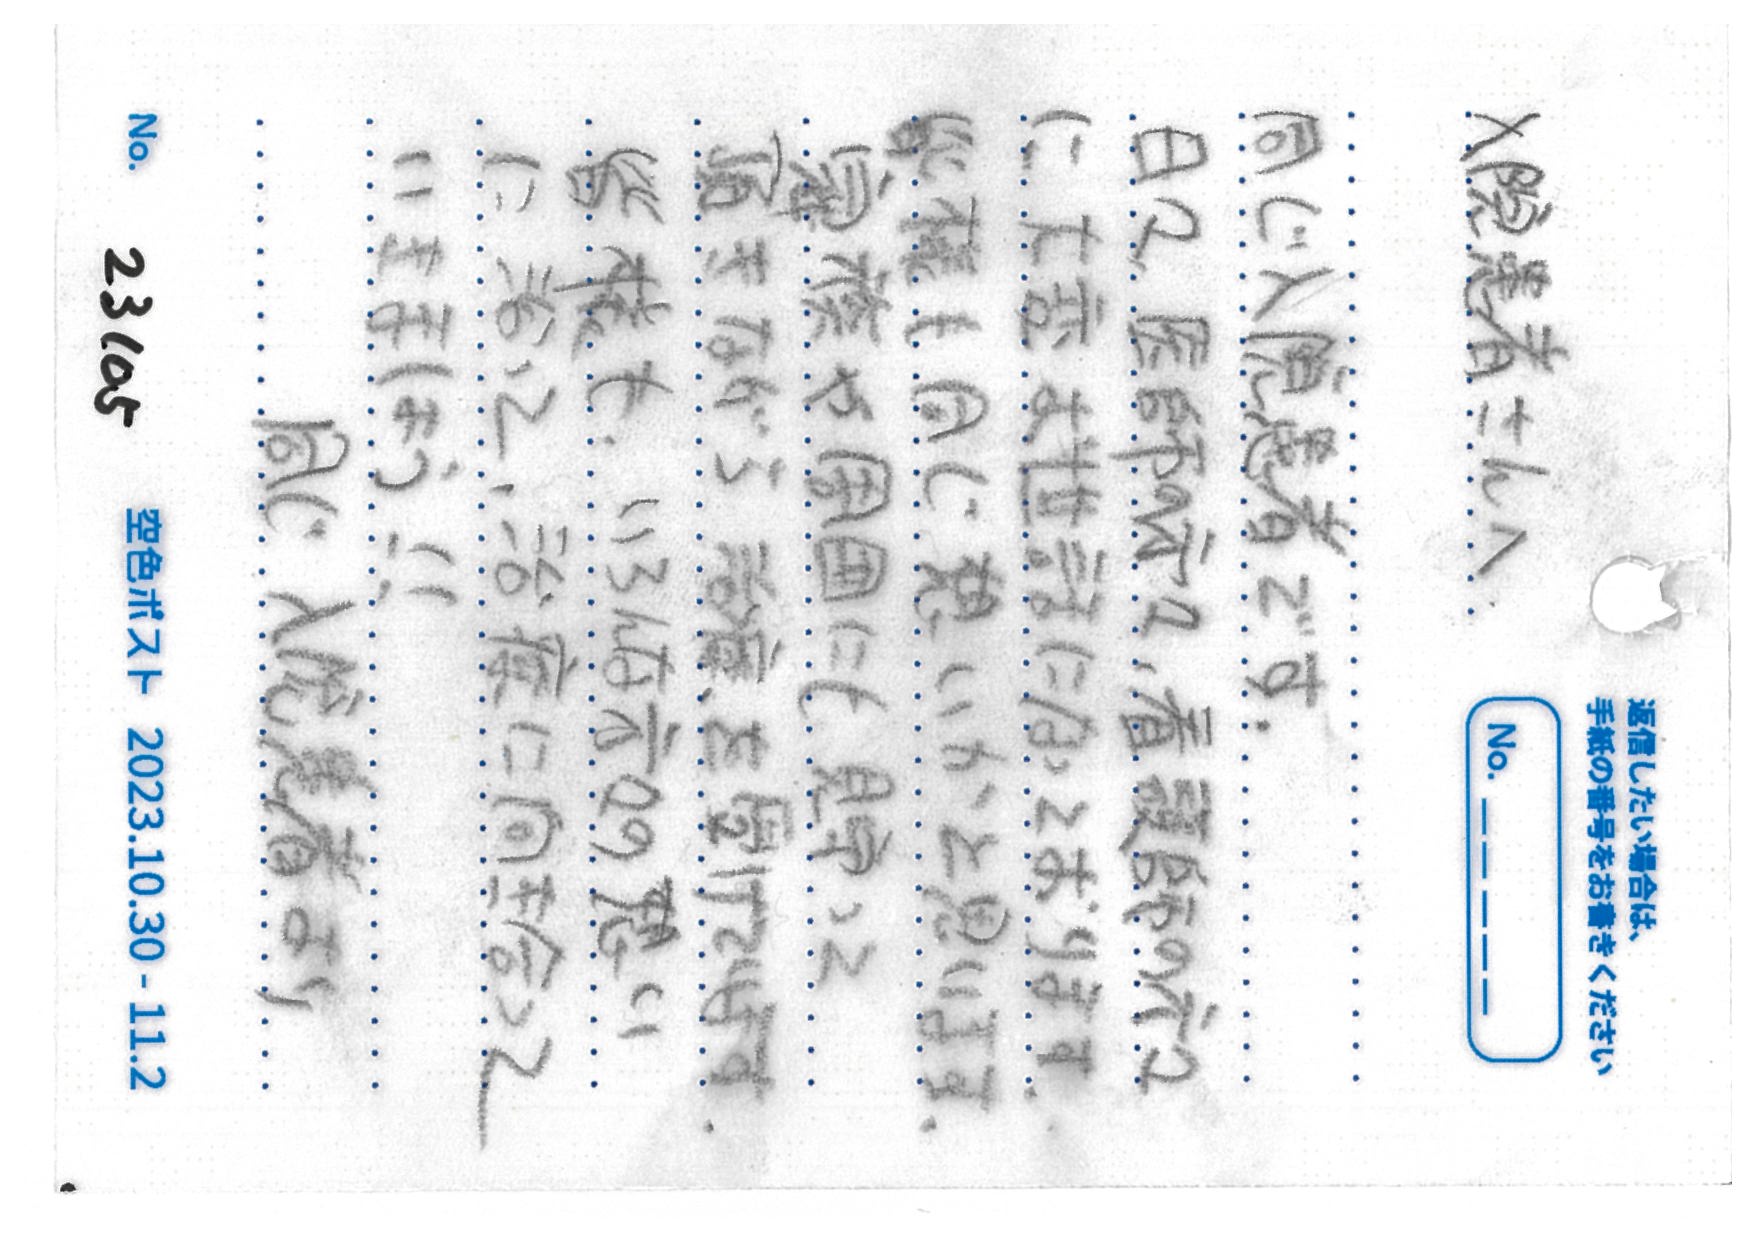 返信したい場合は、
手紙の番号をお書きください
No. _ _ _ _ _
入院患者さんへ.
同じ入院患者です.
日々、医師の方々、看護師の方々
に大変お世話になっております.
皆様も同じ想いかと思います.
家族や周囲にも見守って
頂きながら治療を受けています.
皆様も、いろんな方々の想い
に沿って、治療に向き合って
いきましょう!!
同じ入院患者より
No. 23105
空色ポスト 2023.10.30 - 11.2